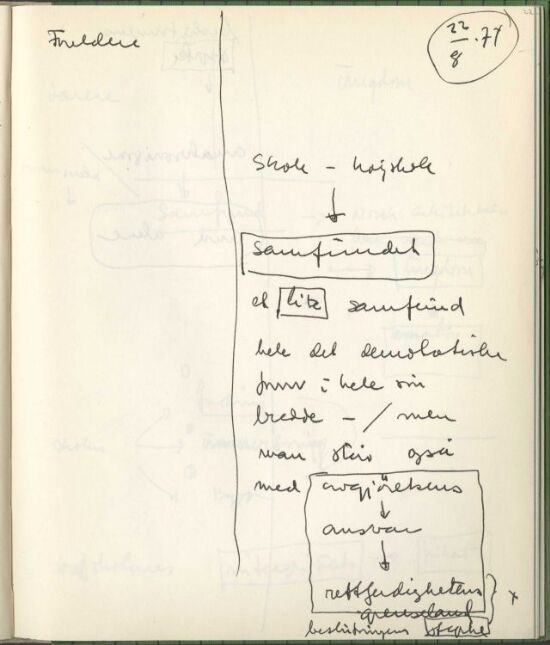 22/8.77
Skole - højskole
samfundet
et lite samfund
hele det demokratiske
i hele sin
bredde - / men
man står også
med avgjörelsens
ansvar
rettferdighetens
grenseland
beslutningens